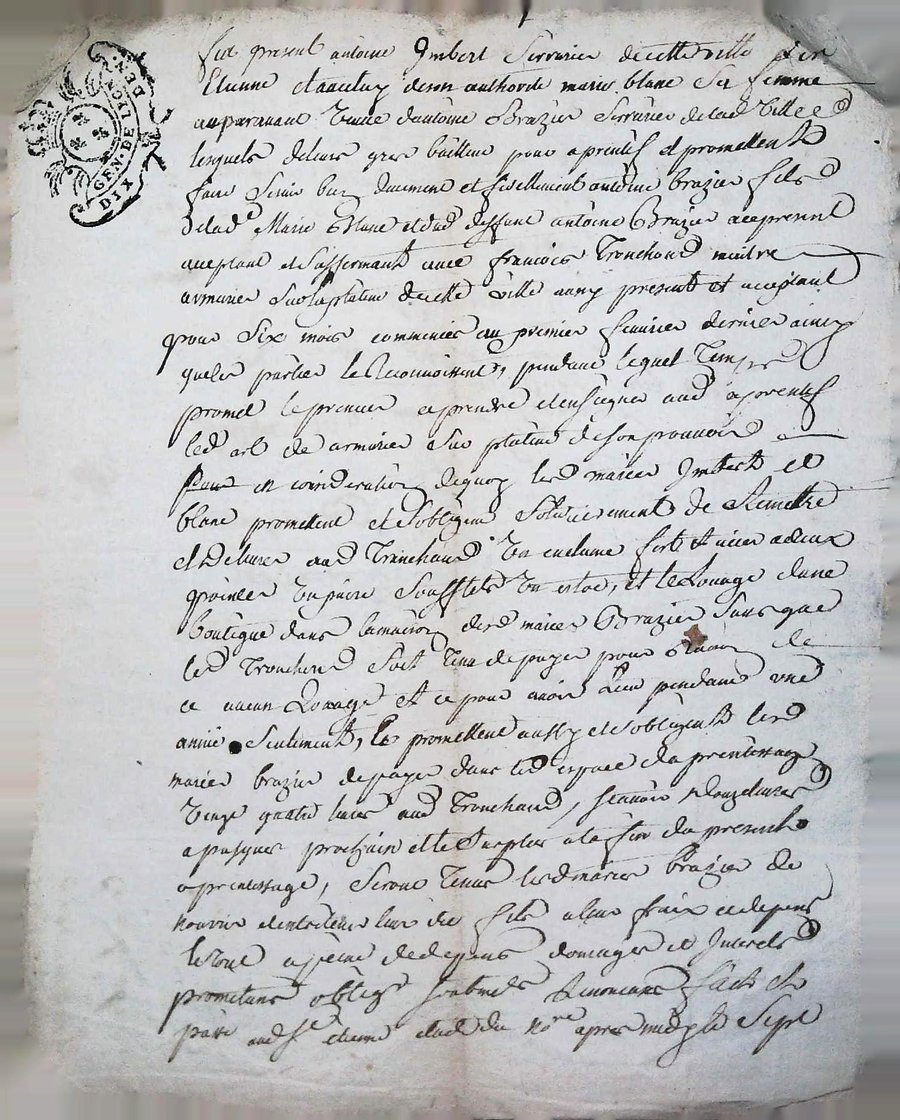 GEN. DE LYON
DIX DEN
fut present antoine Imbert Serrurier decette ville
Etienne et aveluy deson authorité marie blanc sa femme
auparavant veuve dantoine Brazier Serrurier delad ville
lesquels deleurs gres baillent pour aprentif et promettent
faire Servir bien duement et fidellement antoine brazier fils
delade Marie Blanc et dud deffunt antoine Brazier acepresent
aceptant et Saffermant avec francois Tronchond maitre
armurier Surlaplatine decette ville aussy present et aceptant
pour Six mois commencés au premier fevrier dernier ainsy
queles parties le Reconnoissent, pendant lequel Temps
promet le premier aprendre et enseigner aud aprentif
led art de armurier Sur platine deson pouvoir
Pour en consideration dequoy lesd mariés Imbert et
blanc promettent et Sobligent Solidairement de Remettre
et Delivrer aud Tronchond un enclume fort et acier adeux
pointes un paire Soufflets un estoc, et le Louage dune
boutique dans lamaison desd mariés Brazier Sans que
led Tronchond Soit Tenu depayer pour raison de
ce aucun Louage et ce pour avoir Lieu pendant une
année Seulement, promettent aussy et sobligent lesd
mariés brazier depayer dans led espace daprentissage
vingt quatre livres aud Tronchond, scavoir Douze livres
a pasques prochain et le Surplus a la fin du present
aprentissage, Seront Tenus lesd mariés brazier de
nourrir et entretenir leur dit fils a leur fraix et depens
le tout a peine dedepens domages et Interets
promettans obligs soubmels Renoncans fait et
passé aud St etienne etude du nore apres midy le Sept